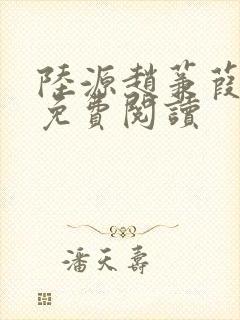 陸源趙蒹葭
免費閱讀
潘天壽